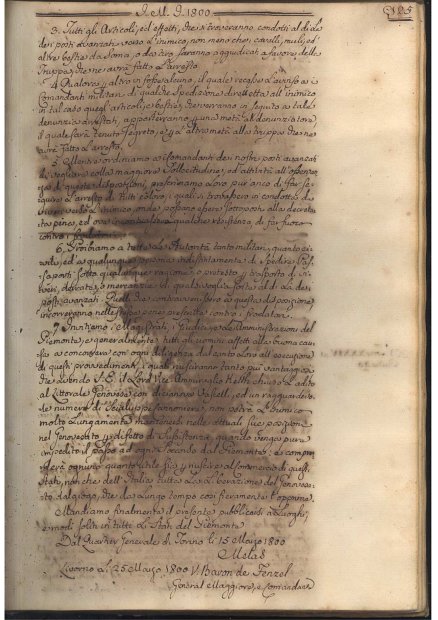 I. M. I. 1800
125
3. Tutti gli Articoli, ed effetti, che si troveranno condotti al di là
dei posti avanzati verso l'inimico, non meno che i cavalli, muli, ed
altre bestie da Soma, o da tiro saranno aggiudicati a favore della
Truppa, che ne avrà fatto l'arresto.
4. Qualora altro in fosse alcuno, il quale recasse l'avviso ai
Comandanti militari di qualche Spedizione diretta all'inimico
in tal caso quegli articoli, e bestie, che verranno in seguito a tale
denunzia arrestati, apparterranno per una metà al denunziatore,
il quale sarà tenuto segreto, e per l'altra metà alla Truppa che ne
avrà fatto l'arresto.
5. Mentre ordiniamo ai Comandanti dei nostri posti avanzati
di vegliare colla maggiore Sollecitudine, ed attività all'osservanza
di queste disposizioni, prescriviamo loro pur anco di far se
guire l'arresto di tutti coloro, i quali si trovassero in condotta di
viveri verso l'inimico, onde possano essere sottoposti alle decretate
pene, ed ove incontrassero qualche resistenza di far fuoco
contro i
6. Proibiamo a tutte le Autorità tanto militari, quanto ci
vili, ed a qualunque persona indistintamente di Spedire Pas
saporti sotto qualunque ragione, o pretesto pel trasporto di vi
veri, derrate, o mercanzie di qualunque sorta al di là dei
posti avanzati. Quelli che contravenissero a questa disposizione
incorreranno nelle stesse pene prescritte contro i frodatori.
7. Invitiamo i Magistrati, i Giudici, e le Amministrazioni del
Piemonte, e generalmente tutti gli uomini affetti alla buona cau
sa a concorrere con ogni diligenza dal canto loro all'esecuzione
di questi provvedimenti, i quali riusciranno tanto più vantaggiosi
che avendo S. E. il Lord Vice Ammiraglio Keith chiuso l'adito
al Littorale Genovese con diecinove Vascelli, ed un ragguardevo
le numero di Scialuppe cannoniere, non potrà l'inimico
molto lungamente mantenersi nelle attuali sue posizioni
nel Genovesato per difetto di Sussistenza, quando venga pure
impedito il passo ad ogni Soccorso dal Piemonte; e compren
derà ognuno quanto utile sia per riuscire al commercio di questi
Stati, non che dell'Italia tutta la liberazione del Genovesa
to dal giogo, che da lungo tempo così fieramente l'opprime.
Mandiamo finalmente il presente pubblicarsi a Luoghi,
e modi soliti in tutti li Stati del Piemonte
Dal Quartier Generale di Torino li 15 Marzo 1800
Melas
Livorno li 25 Marzo 1800 V. Baron de Fenzel
General Maggiore, e Comandante